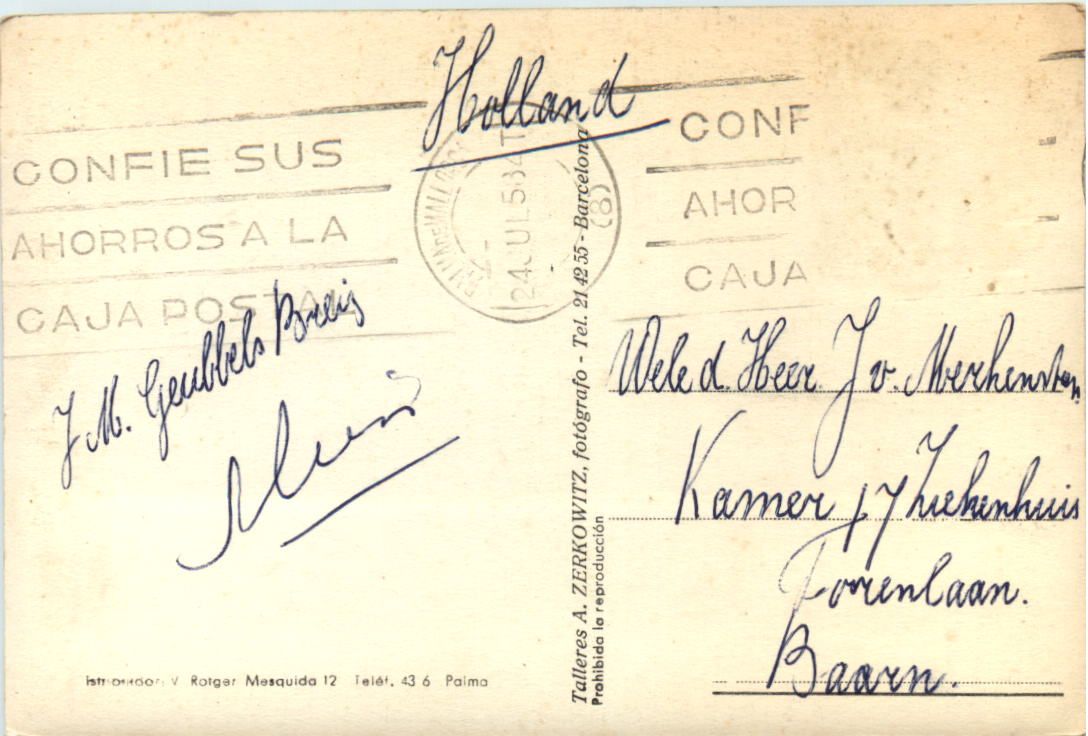 Holland
CONFIE SUS
AHORROS A LA
CAJA POSTAL
PALMA DE MALLORCA
24 JUL 58 4 T
(8)
CONF
AHOR
CAJA
J M. Geubbels Breig
Weled. Heer J v. Merkensteyn
Kamer 17 Ziekenhuis
Torenlaan.
Baarn.
Talleres A. ZERKOWITZ, fotógrafo - Tel. 21 42 55 - Barcelona
Prohibida la reproducción
V Rotger Mesquida 12 Teléf. 43 6 Palma